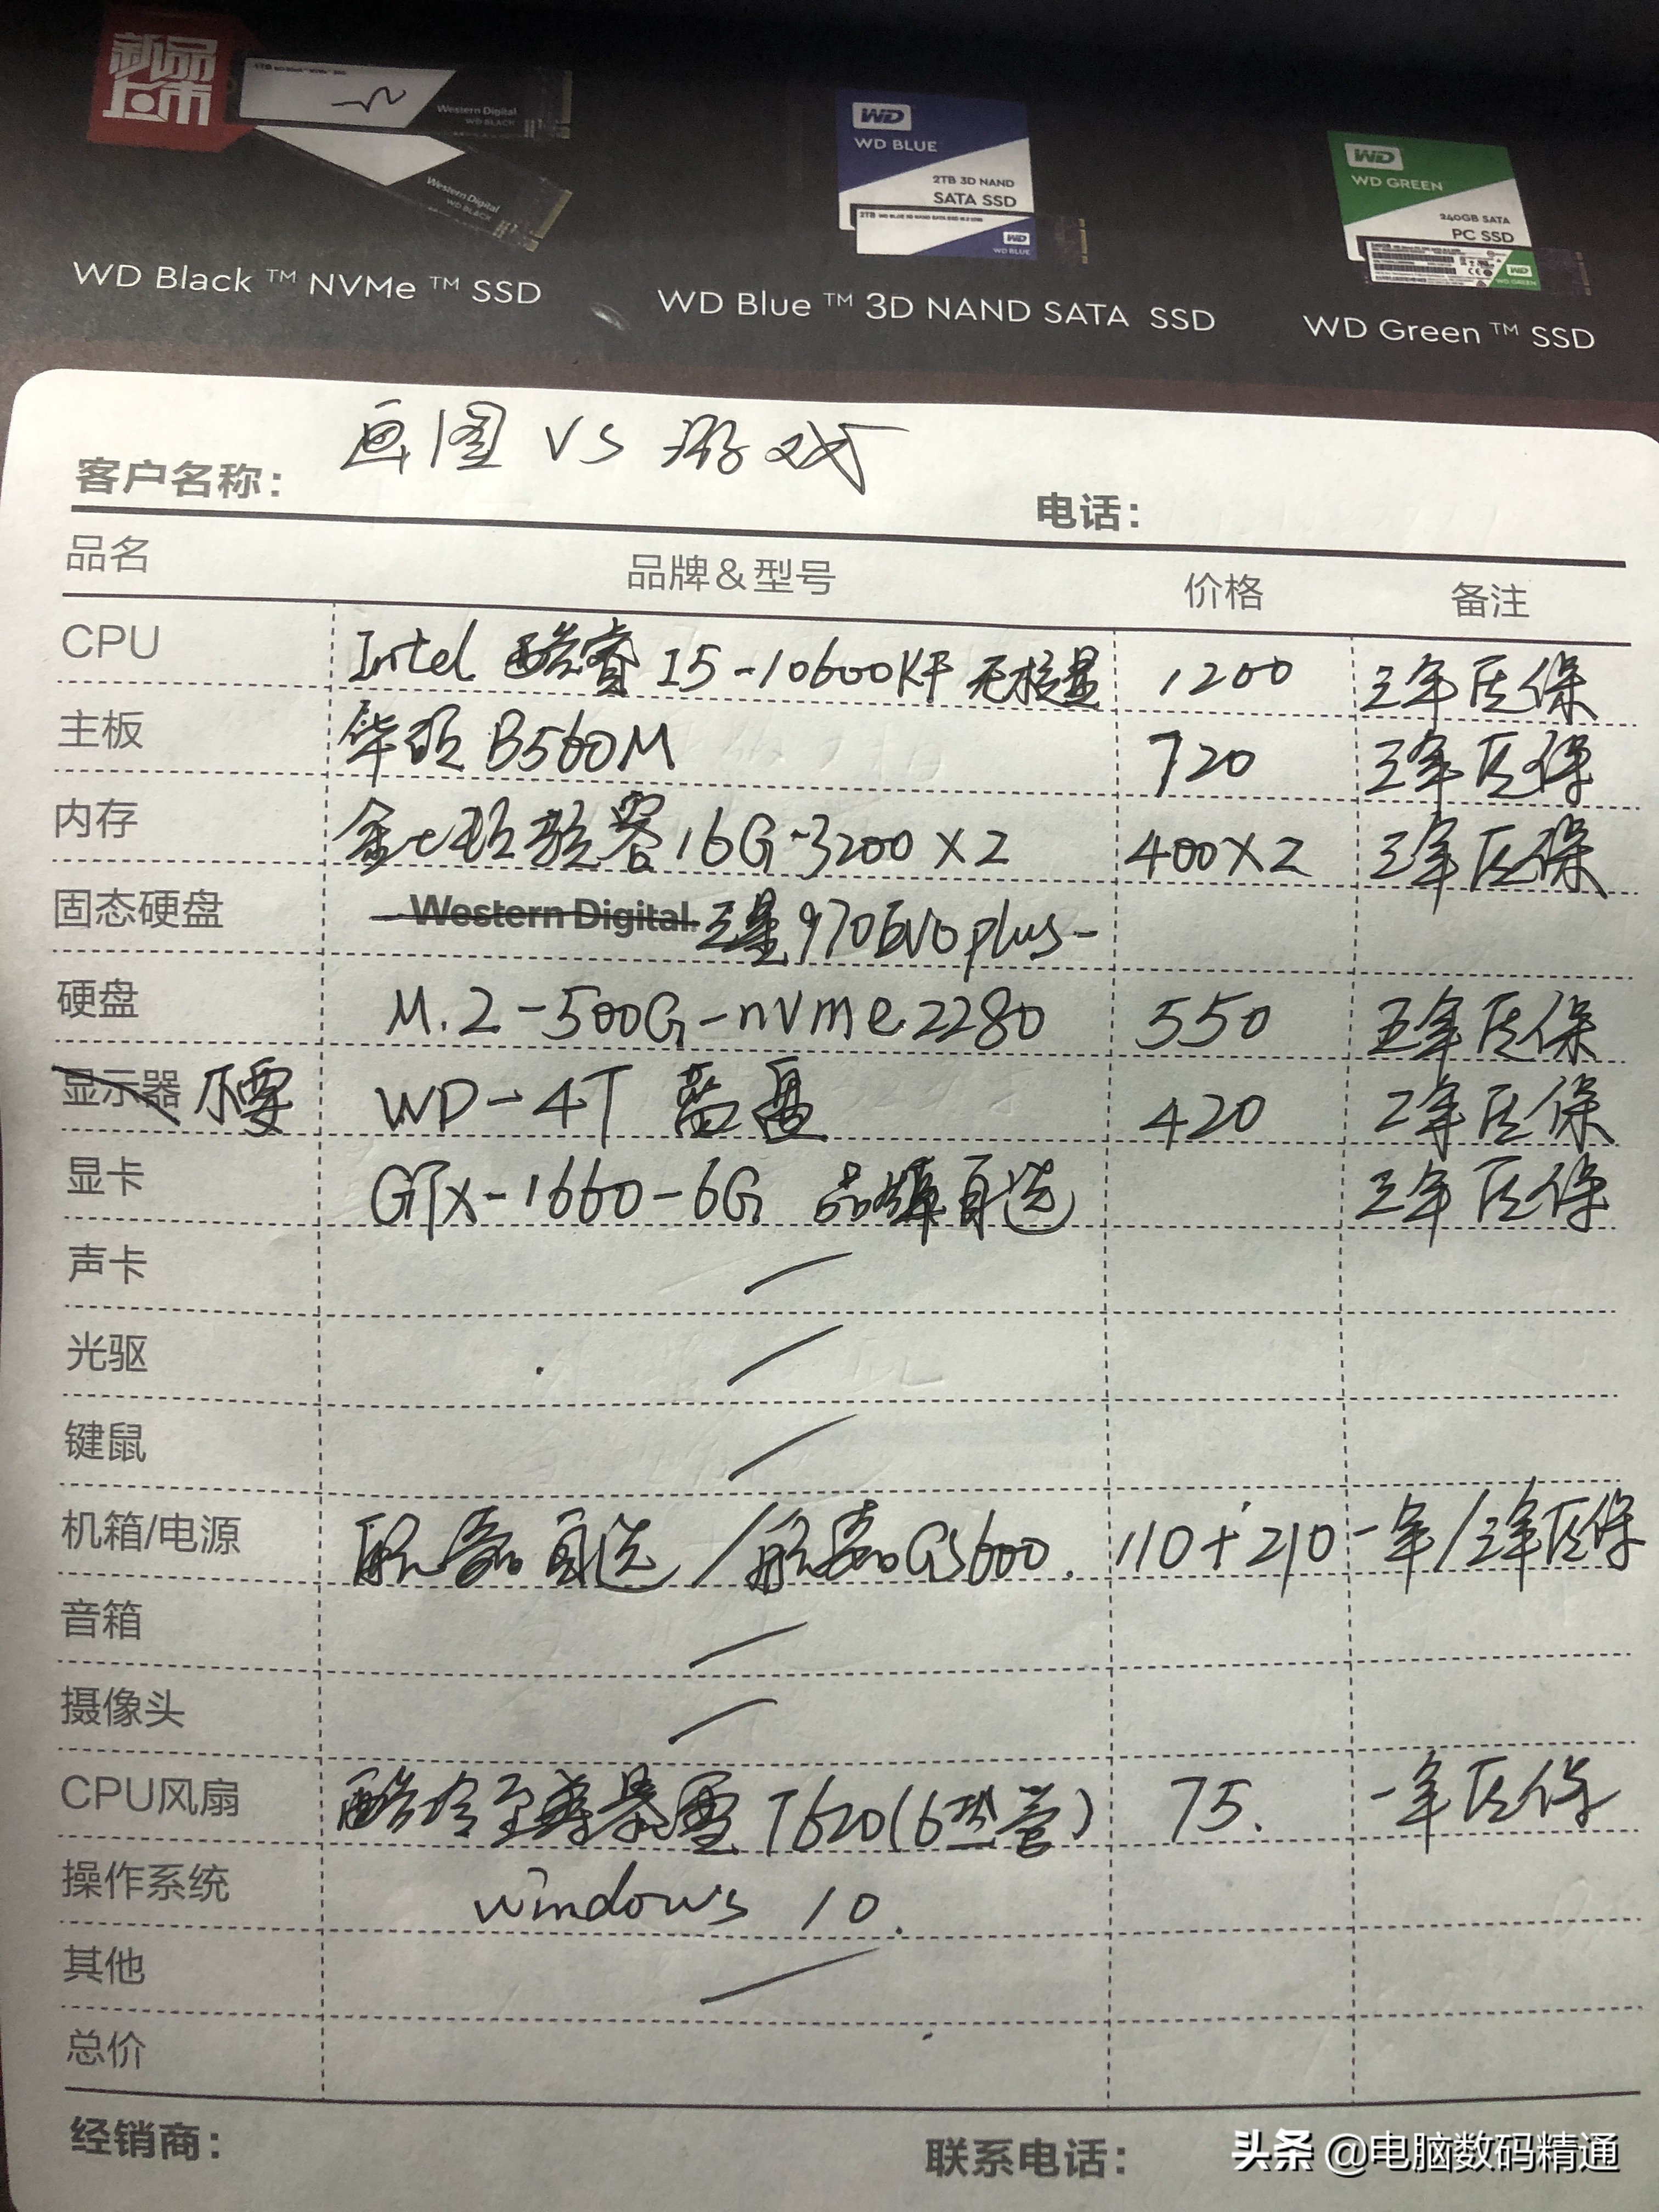 新品
上市
Western Digital
WD BLACK
Western Digital
WD BLACK
WD
WD BLUE
2TB 3D NAND
SATA SSD
WD
WD BLUE
WD
WD GREEN
240GB SATA
PC SSD
WD
WD GREEN
WD Black ™ NVMe ™ SSD
WD Blue ™ 3D NAND SATA SSD
WD Green ™ SSD
客户名称: 画图 VS 游戏
电话:
品名 品牌&型号 价格 备注
CPU Intel 酷睿 I5-10600KF 无核显 1200 三年质保
主板 华硕 B560M 720 三年质保
内存 金士顿骇客16G-3200 X2 400X2 三年质保
固态硬盘 Western Digital. 三星970EVO plus-
硬盘 M.2-500G-nvme 2280 550 五年质保
显示器 不要 WD-4T 蓝盘 420 2年质保
显卡 GTX-1660-6G 品牌自选 三年质保
声卡
光驱
键鼠
机箱/电源 航嘉自选/航嘉GS600. 110+210 一年/三年质保
音箱
摄像头
CPU风扇 酷冷至尊暴雪 T620(6热管) 75. 一年质保
操作系统 windows 10.
其他
总价
经销商:
联系电话:
头条 @电脑数码精通